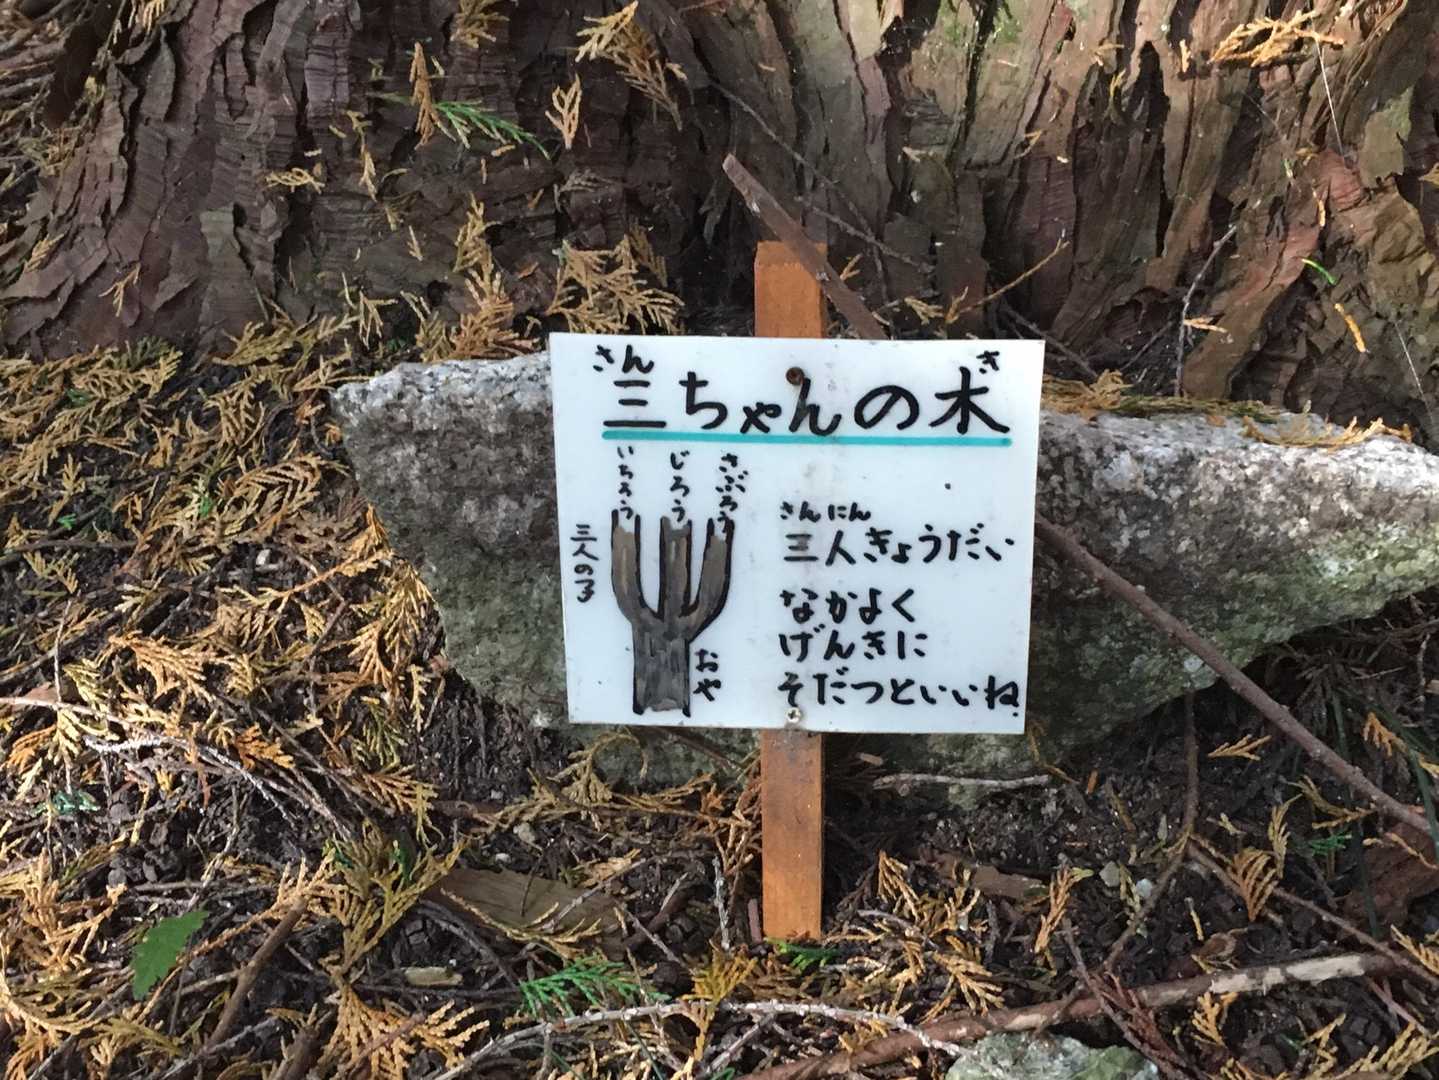 さん き
三ちゃんの木
いちろう
じろう
さぶろう
三人の子
おや
さんにん
三人きょうだい
なかよく
げんきに
そだつといいね